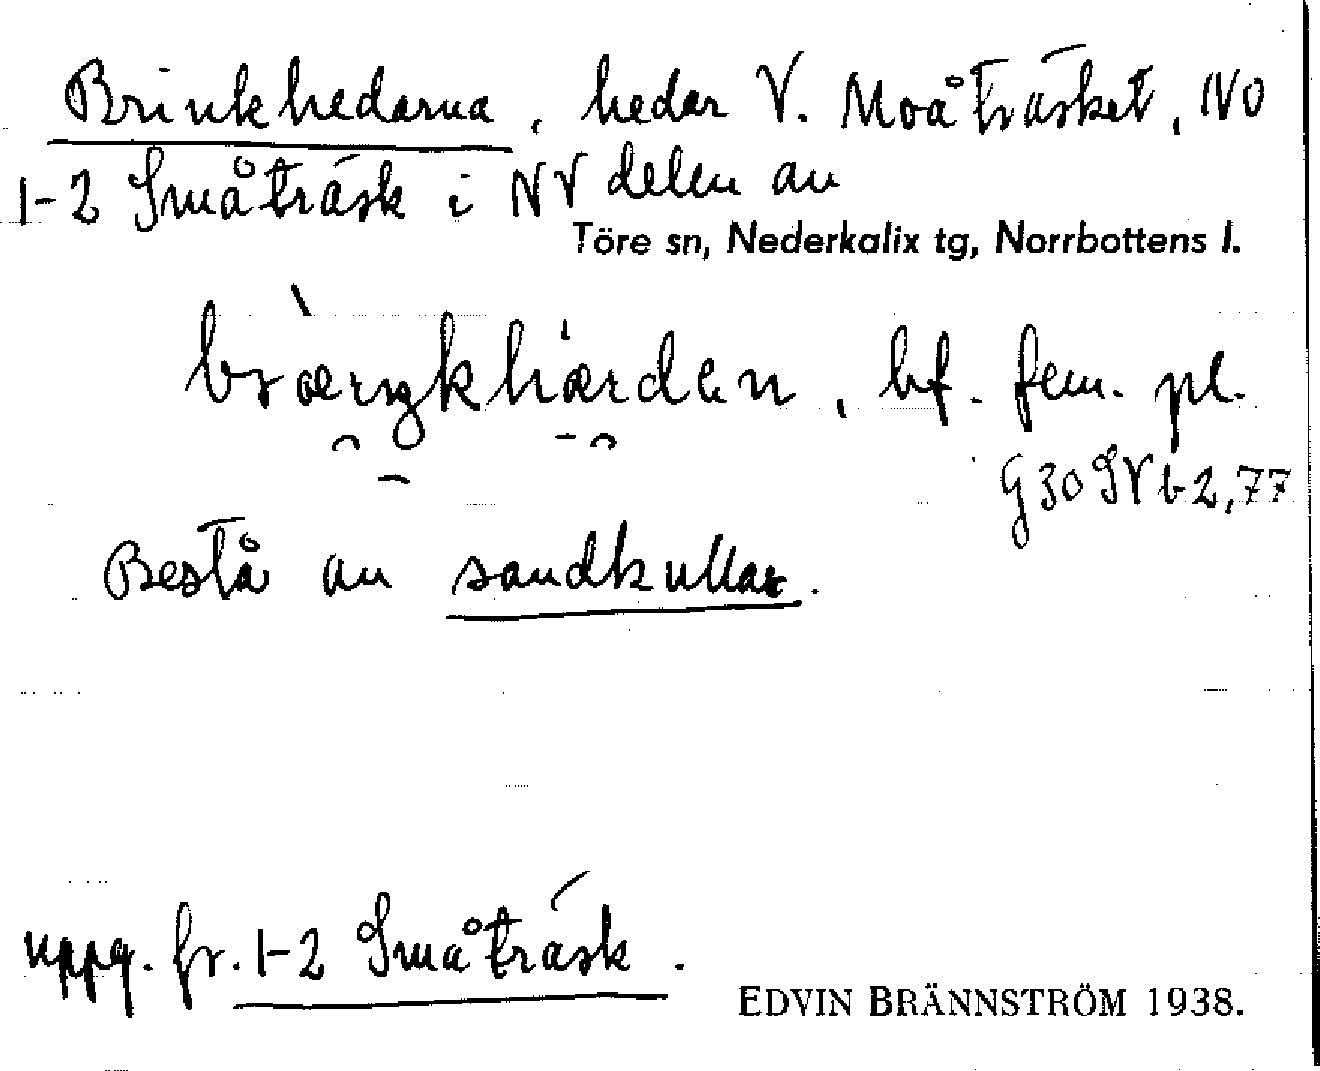 Brinkhedarna, hedar V. Moåträsket, NO
1-2 Småträsk i NV delen av
Töre sn, Nederkalix tg, Norrbottens l.
bf. fem. pl.
G 30 SV b 2,77
Bestå av sandkullar.
uppg. fr. 1-2 Småträsk.
EDVIN BRÄNNSTRÖM 1938.